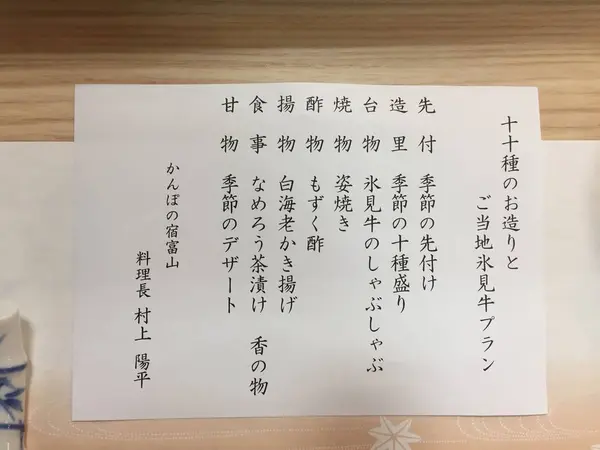 十十種のお造りと
ご当地氷見牛プラン
先付 季節の先付け
造里 季節の十種盛り
台物 氷見牛のしゃぶしゃぶ
焼物 姿焼き
酢物 もずく酢
揚物 白海老かき揚げ
食事 なめろう茶漬け 香の物
甘物 季節のデザート
かんぽの宿富山
料理長 村上 陽平